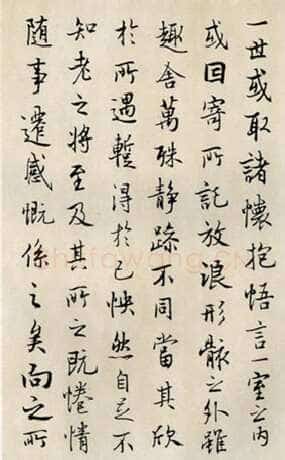 一世或取諸懷抱悟言一室之内
或因寄所託放浪形骸之外雖
趣舍萬殊静躁不同當其欣
於所遇暫得於己怏然自足不
知老之將至及其所之既惓情
隨事遷感慨係之矣向之所